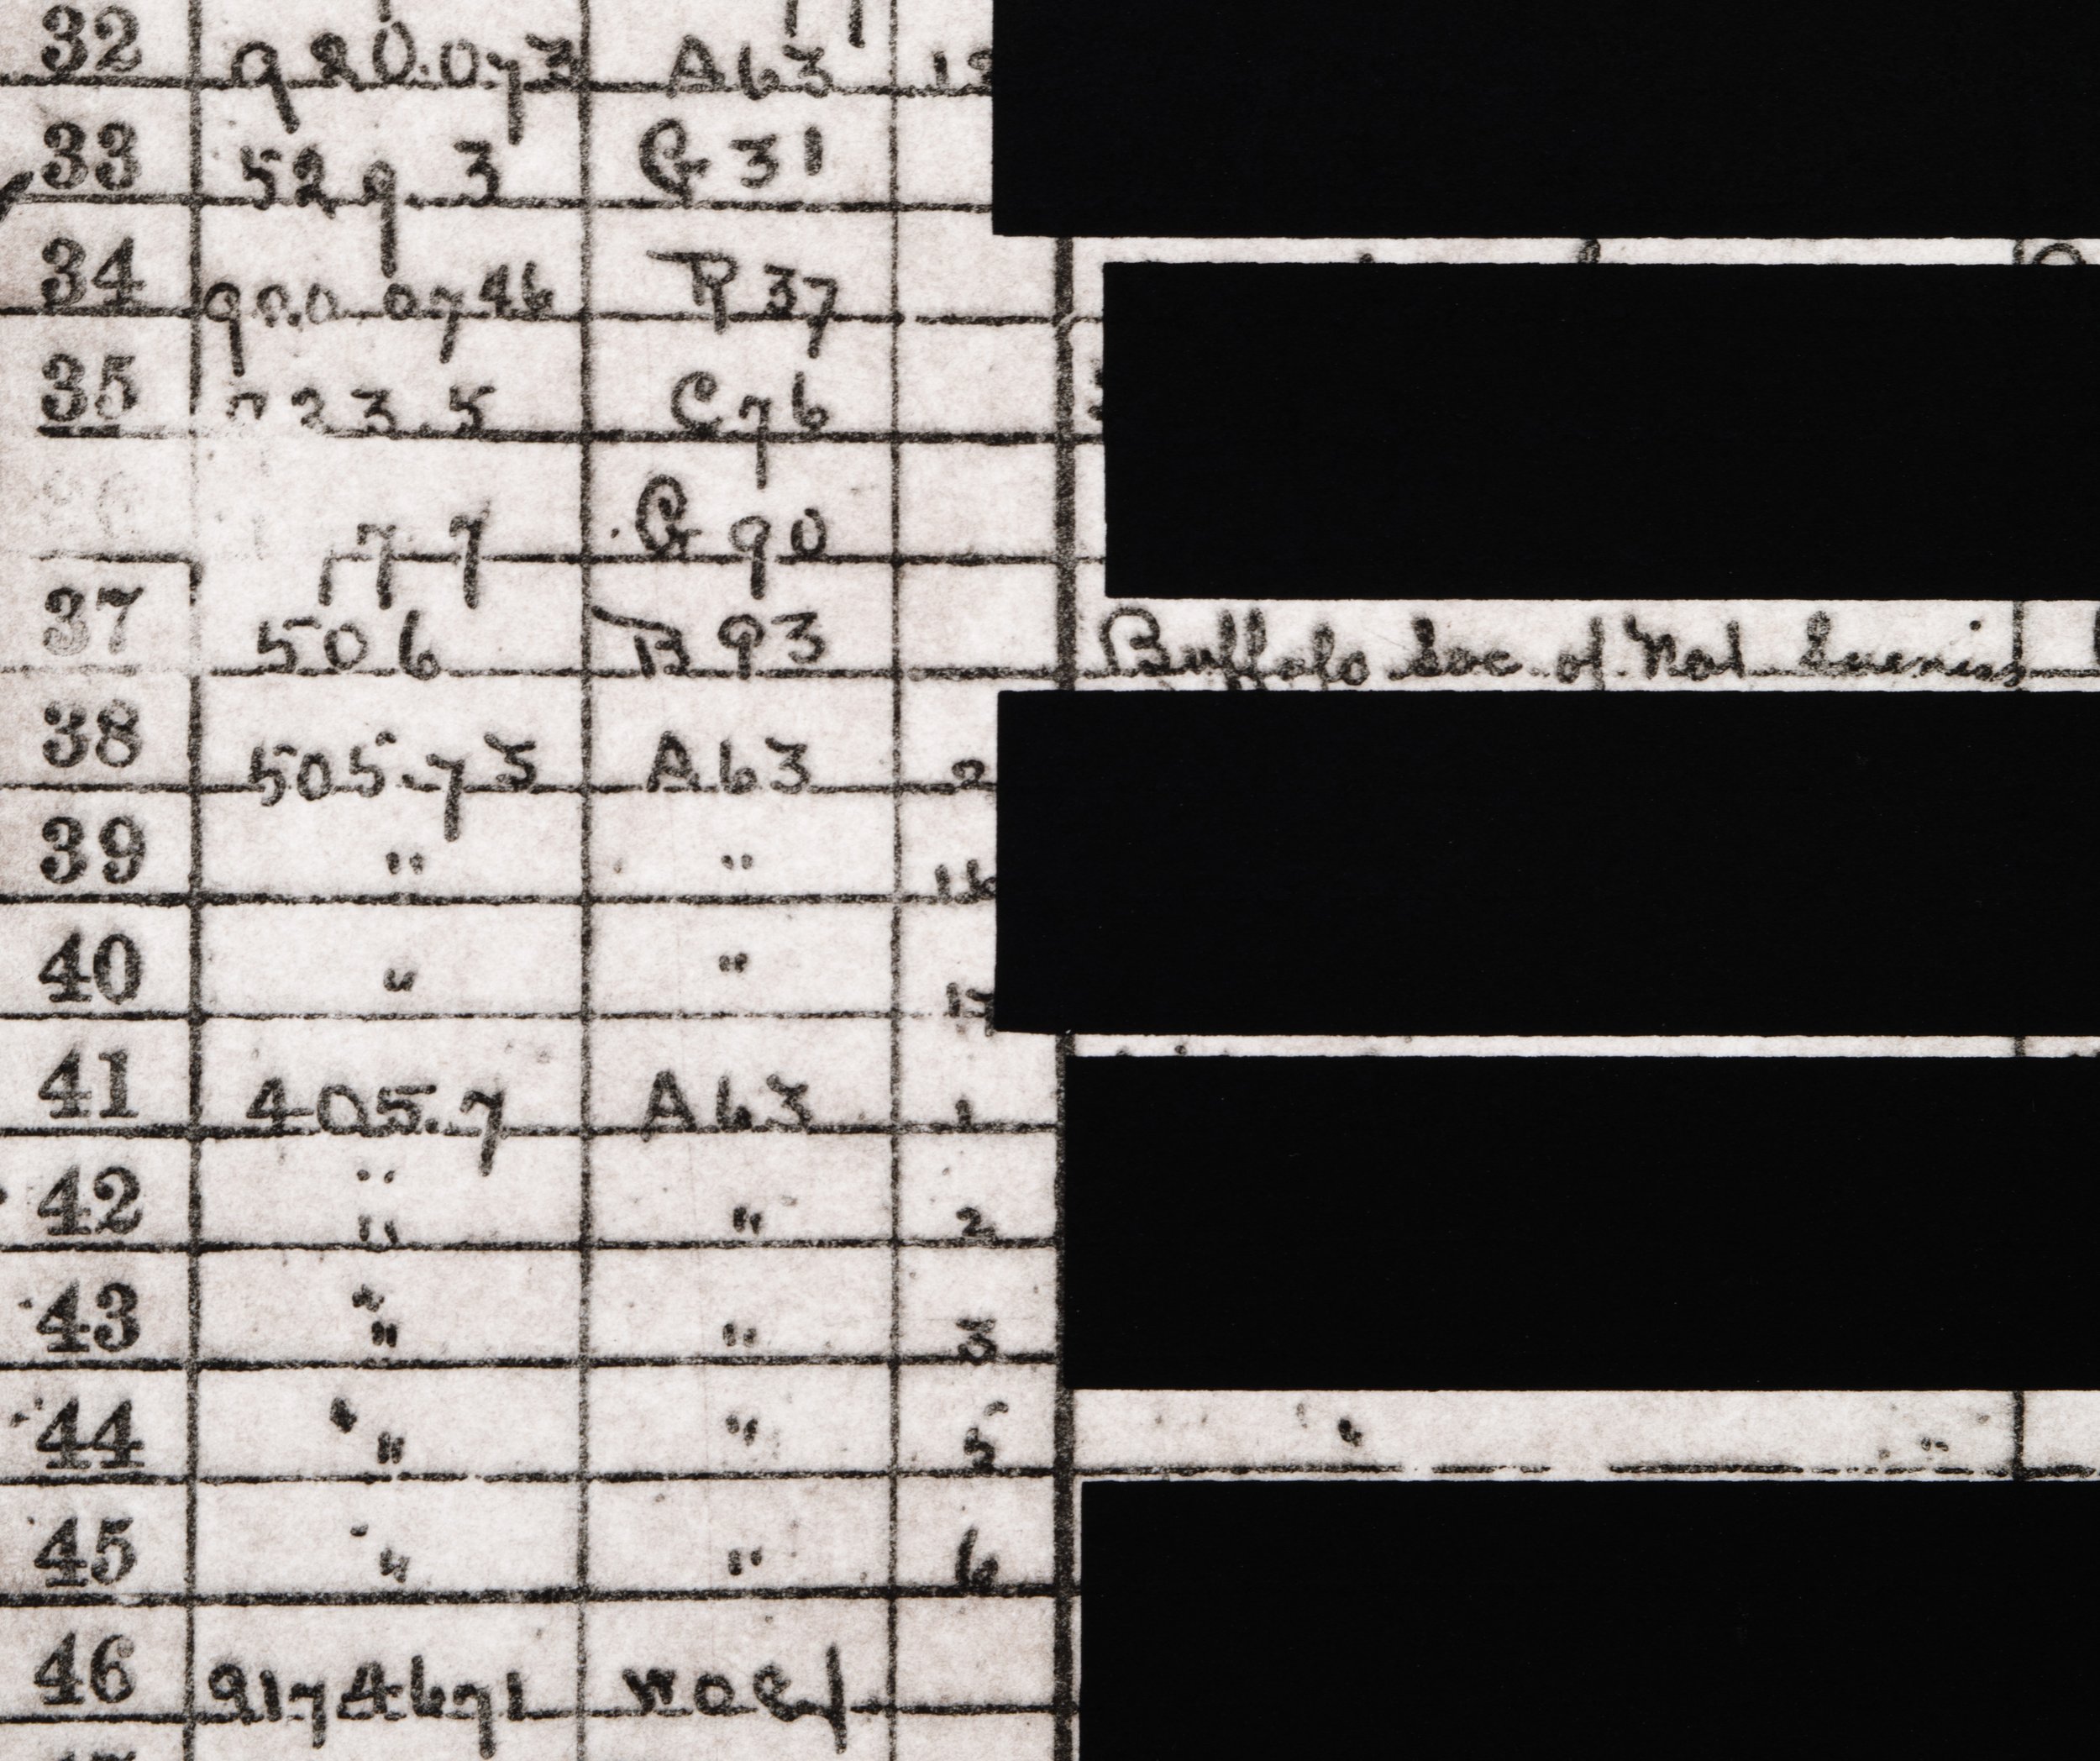 32 920.073 A63 12
33 529.3 G31
34 920.0746 R37
35 723.5 C76
77 G90
37 506 B93 Buffalo Soc. of Nat Sciences
38 505.73 A63 2
39 " " 16
40 " " 17
41 405.7 A63 1
42 " " 2
43 " " 3
44 " " 5 " "
45 " " 6
46 9174671